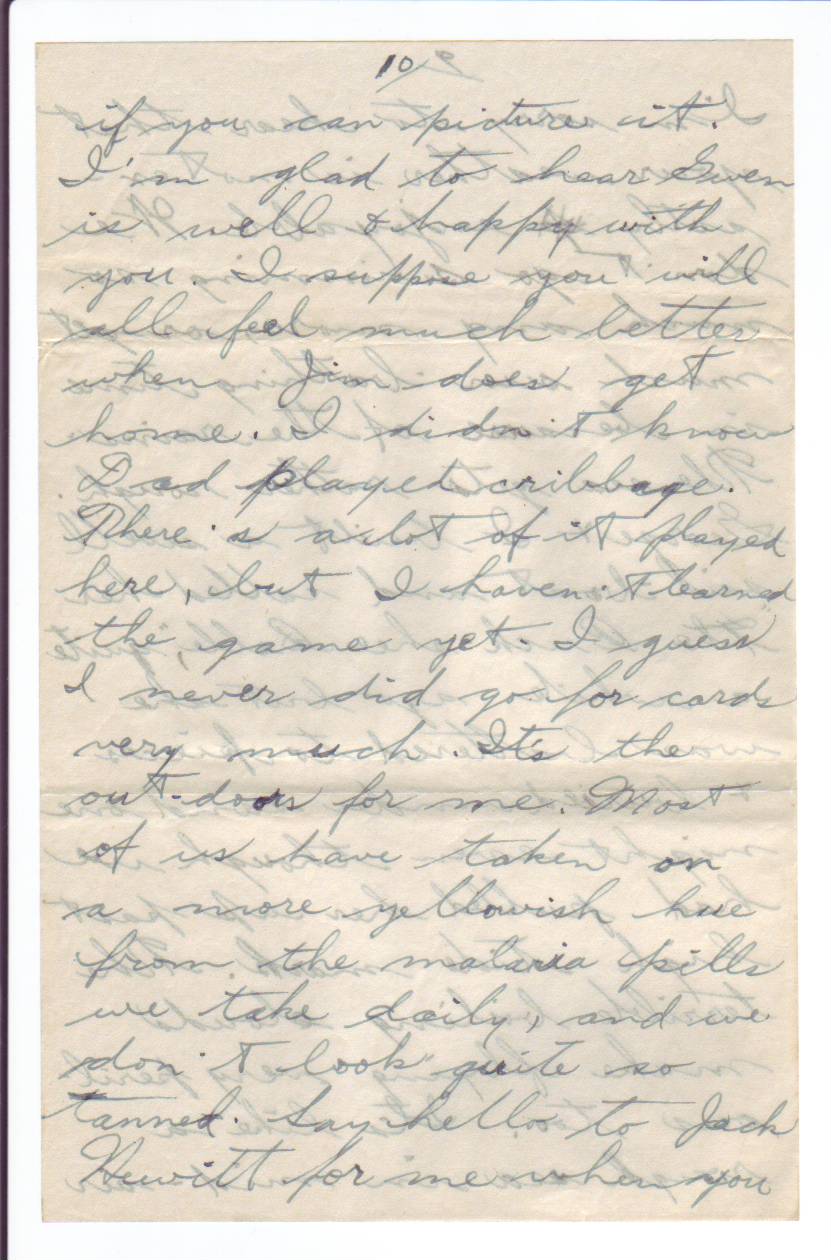 10
if you can picture it.
I'm glad to hear Gwen
is well & happy with
you. I suppose you will
all feel much better
when Jim does get
home. I didn't know
Dad played cribbage.
There's a lot of it played
here, but I haven't learned
the game yet. I guess
I never did go for cards
very much. It's the
out-doors for me. Most
of us have taken on
a more yellowish hue
from the malaria pills
we take daily, and we
don't look quite so
tanned. Say hello to Jack
Hewitt for me when you